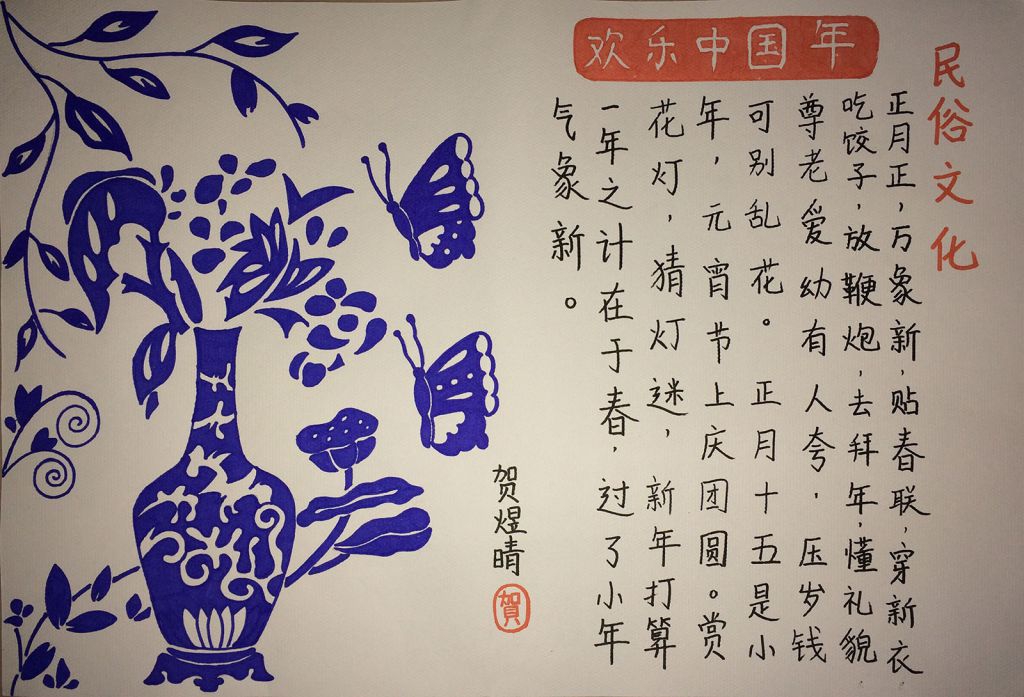 欢乐中国年
民俗文化
正月正，万象新，贴春联，穿新衣
吃饺子，放鞭炮，去拜年，懂礼貌
尊老爱幼有人夸，压岁钱
可别乱花。正月十五是小
年，元宵节上庆团圆。赏
花灯，猜灯迷，新年打算
一年之计在于春，过了小年
气象新。
贺煜晴
賀